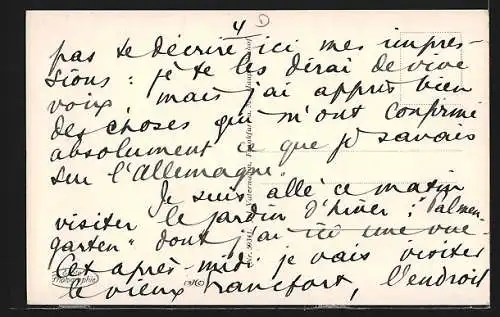 4 D
pas te décrire ici mes impres-
sions : je te les dirai de vive
voix, mais j'ai appris bien
des choses qui m'ont confirmé
absolument ce que je savais
sur l'Allemagne.
Je suis allé ce matin
visiter le jardin d'hiver, "Palmen
garten" dont j'ai ici une vue.
Cet après-midi je vais visiter
le vieux Francfort, l'endroit